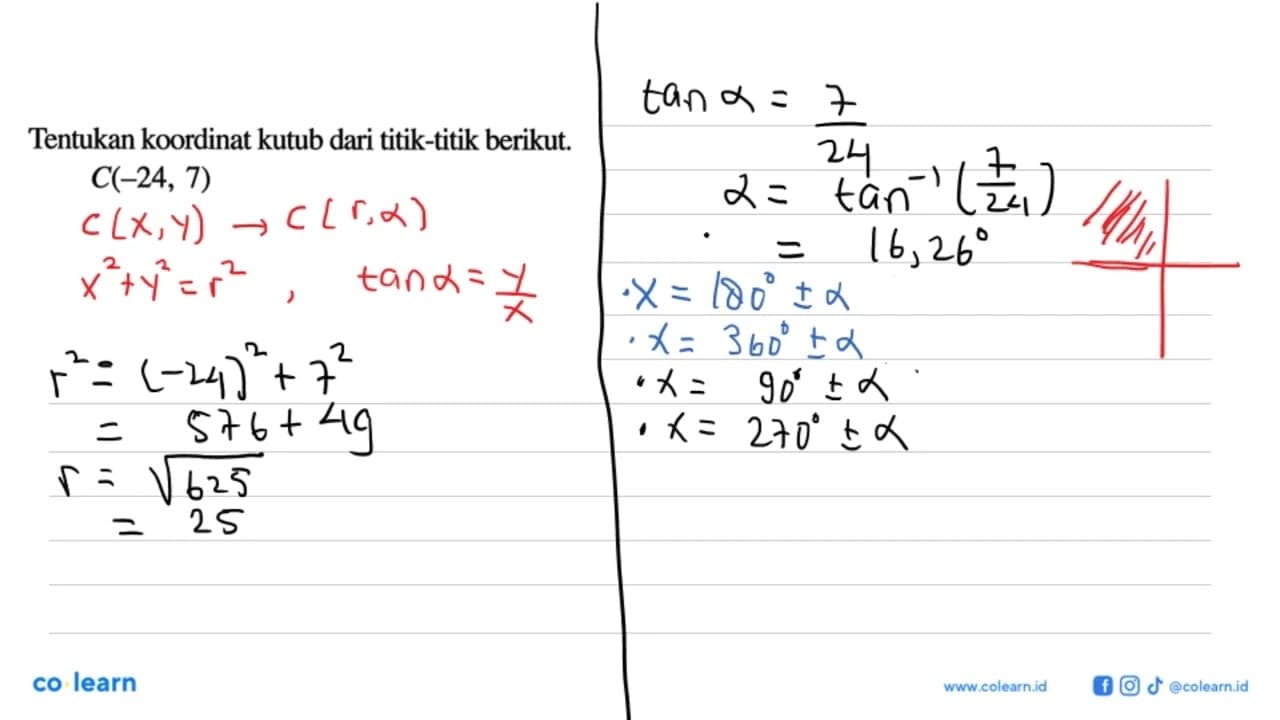 Tentukan koordinat kutub dari titik-titik berikut.
C(–24, 7)
C(x,y) → C(r,α)
x²+y²=r² , tanα=y/x
r²= (-24)²+7²
= 576+49
r= √625
= 25
tanα = 7/24
α = tan⁻¹(7/24)
= 16,26°
·x = 180° ± α
·x = 360° ± α
·x = 90° ± α
·x = 270° ± α
co learn
www.colearn.id
@colearn.id